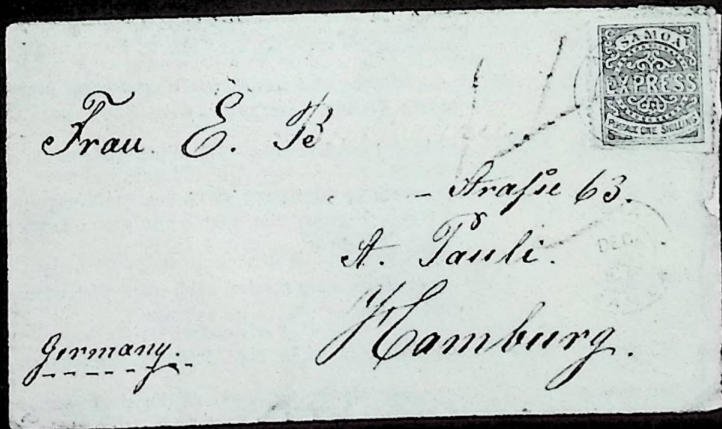 SAMOA
EXPRESS
POSTAGE ONE SHILLING
Frau E. B
- Straſse 63.
St. Pauli.
Hamburg.
Germany.
DEC